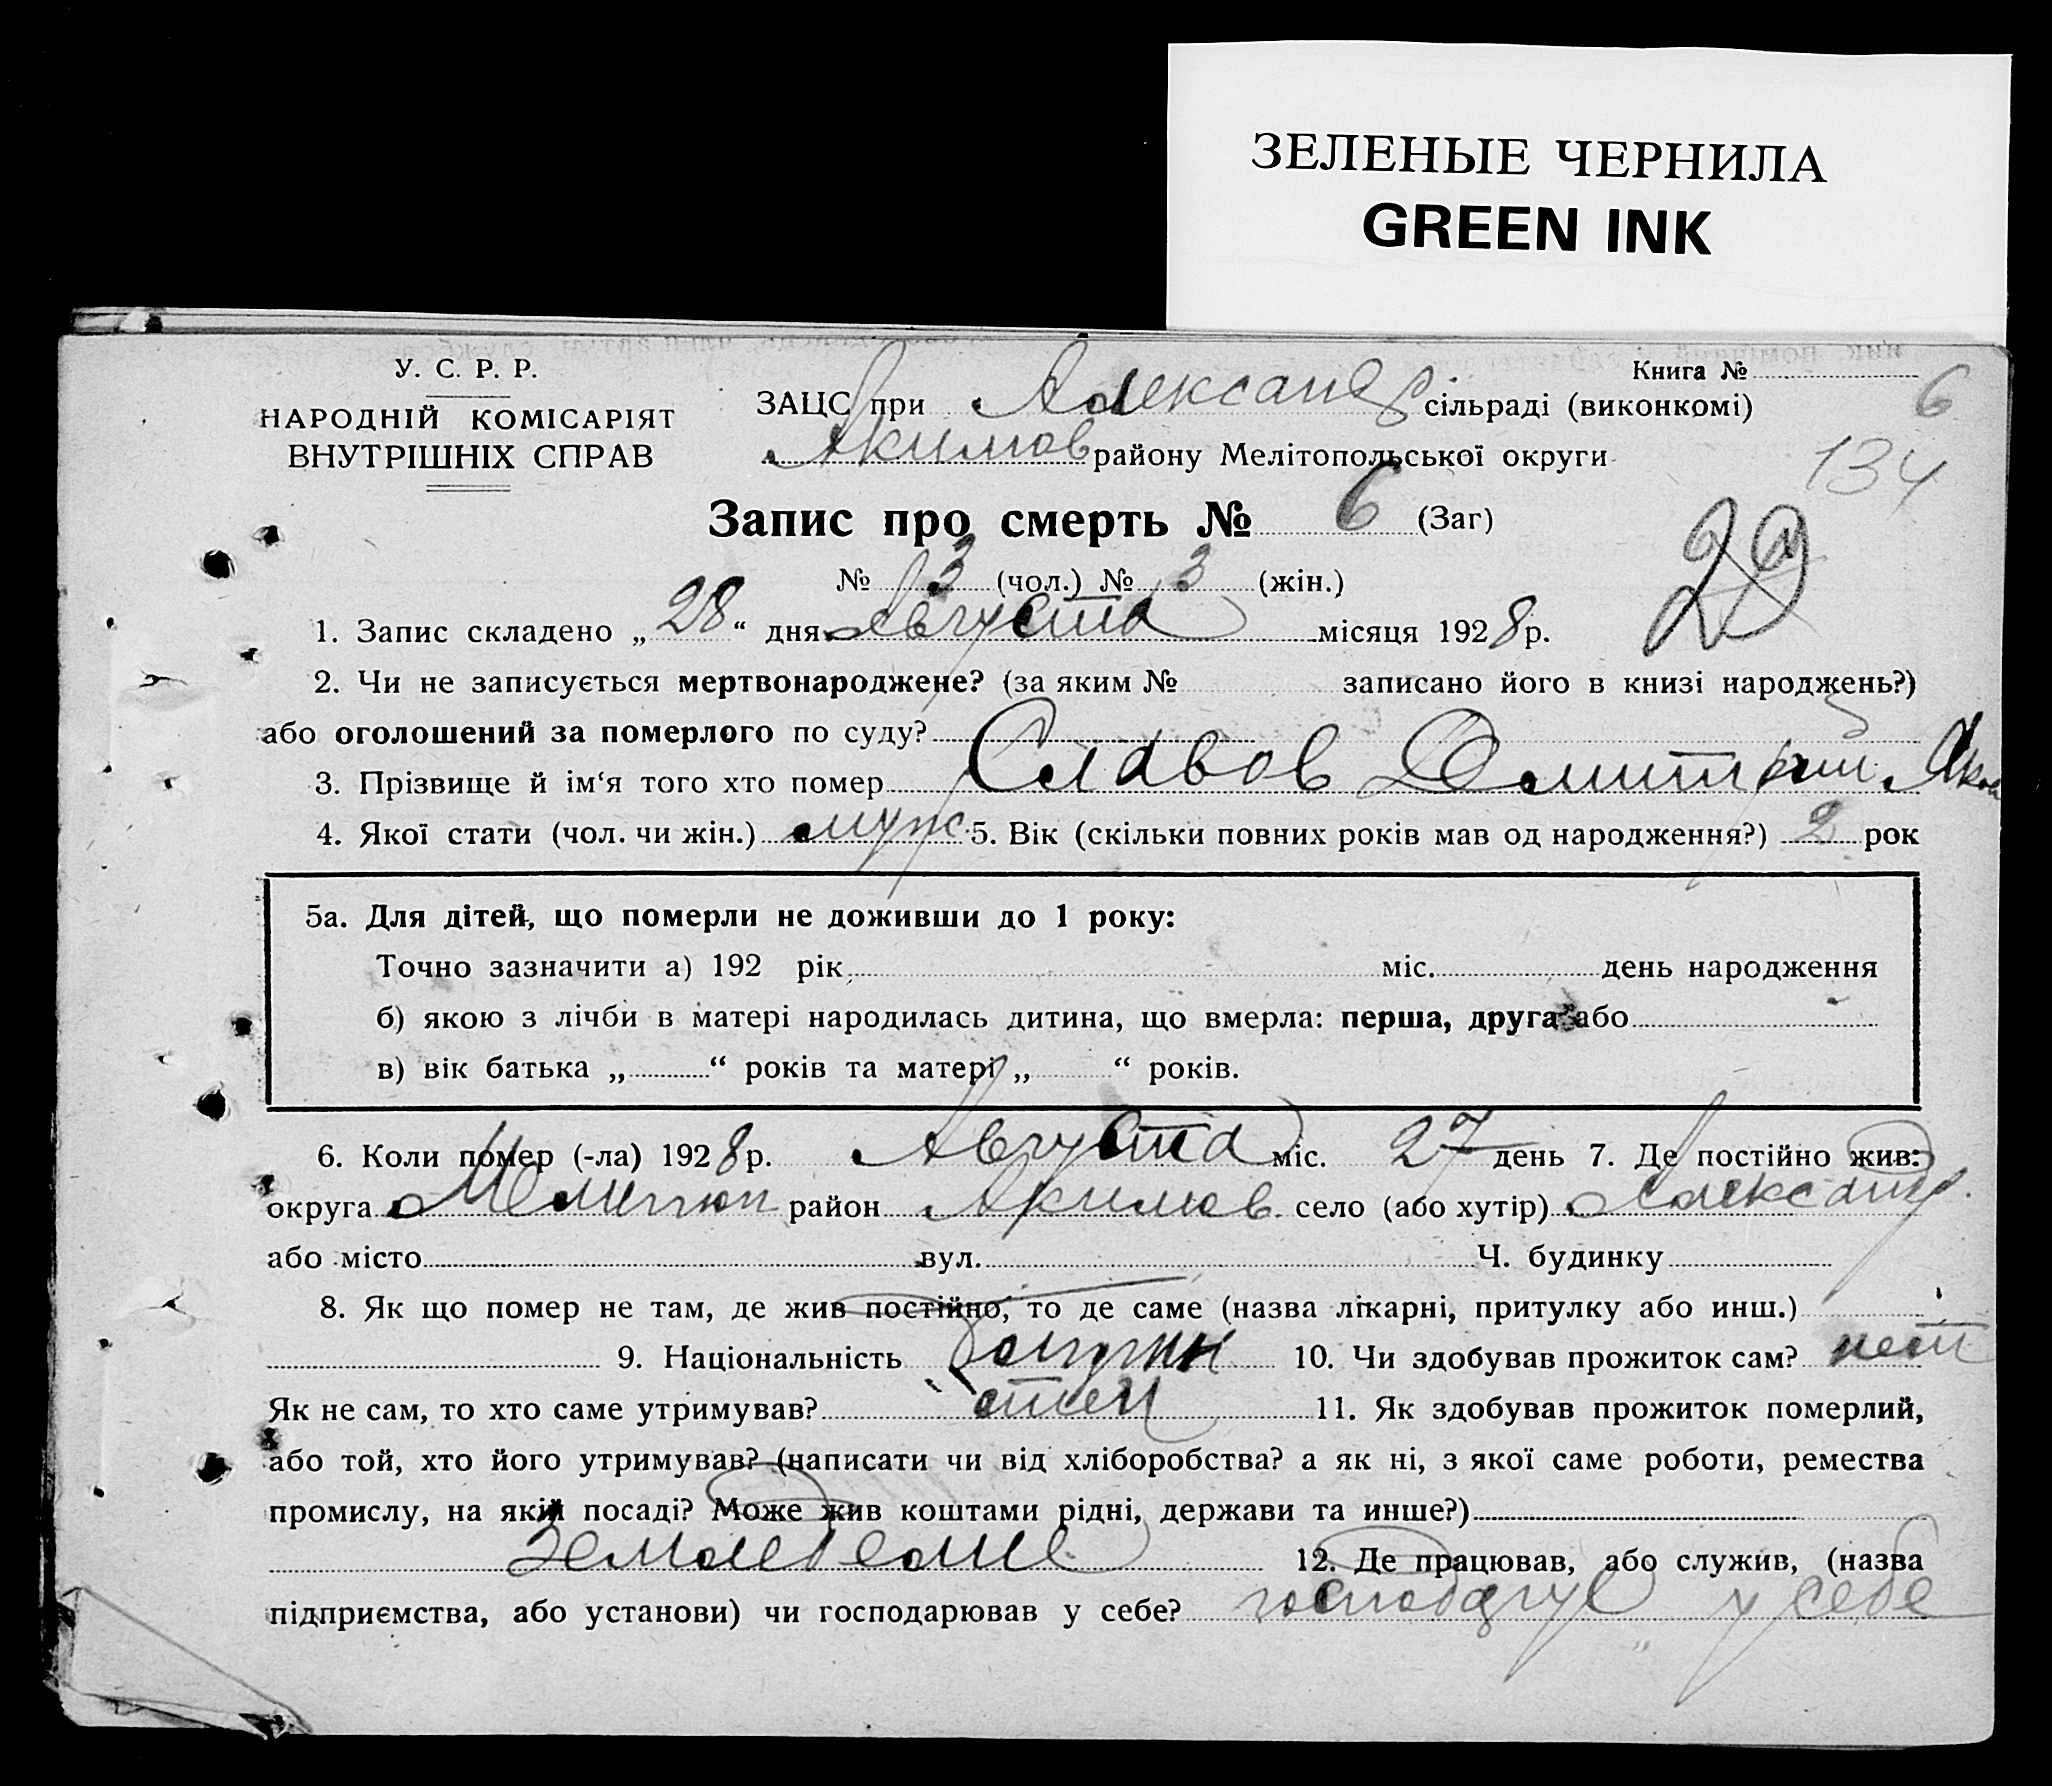 ЗЕЛЕНЫЕ ЧЕРНИЛА
GREEN INK
У. С. Р. Р.
НАРОДНІЙ КОМІСАРІЯТ
ВНУТРІШНІХ СПРАВ
Книга № 6
ЗАЦС при Александр сільраді (виконкомі)
Акимов району Мелітопольської округи
134
Запис про смерть № 6 (Заг)
29
№ 3 (чол.) № 3 (жін.)
1. Запис складено „ 28 “ дня Августа місяця 1928 р.
2. Чи не записується мертвонароджене? (за яким № записано його в книзі народжень?)
або оголошений за померлого по суду?
3. Прізвище й ім‘я того хто помер Славов Дмитрий Яков
4. Якої стати (чол. чи жін.) муж 5. Вік (скільки повних років мав од народження?) 2 рок
5а. Для дітей, що померли не доживши до 1 року:
Точно зазначити а) 192 рік міс. день народження
б) якою з лічби в матері народилась дитина, що вмерла: перша, друга або
в) вік батька „ “ років та матері „ “ років.
6. Коли помер (-ла) 1928 р. Августа міс. 27 день 7. Де постійно жив:
округа Мелитоп район Акимов село (або хутір) Александр.
або місто вул. Ч. будинку
8. Як що помер не там, де жив постійно, то де саме (назва лікарні, притулку або инш.)
9. Національність 10. Чи здобував прожиток сам? нет
Як не сам, то хто саме утримував? отец 11. Як здобував прожиток померлий,
або той, хто його утримував? (написати чи від хліборобства? а як ні, з якої саме роботи, ремества
промислу, на якій посаді? Може жив коштами рідні, держави та инше?)
Земледелие 12. Де працював, або служив, (назва
підприємства, або установи) чи господарював у себе? господарує у себе